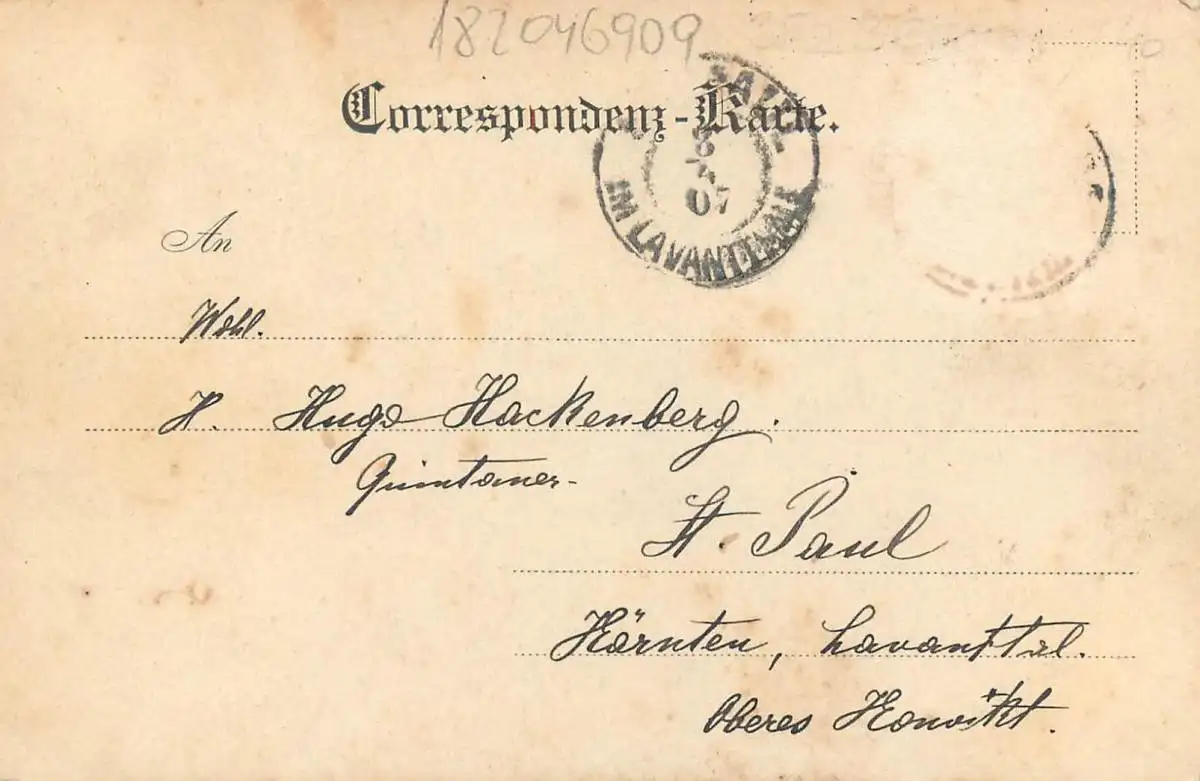 182046909
Correspondenz-Karte.
IM LAVANTTHALE
07
An
Wohl.
H. Hugo Hackenberg.
Quintaner-
St. Paul
Kärnten, Lavanttal.
Oberes Konvikt.